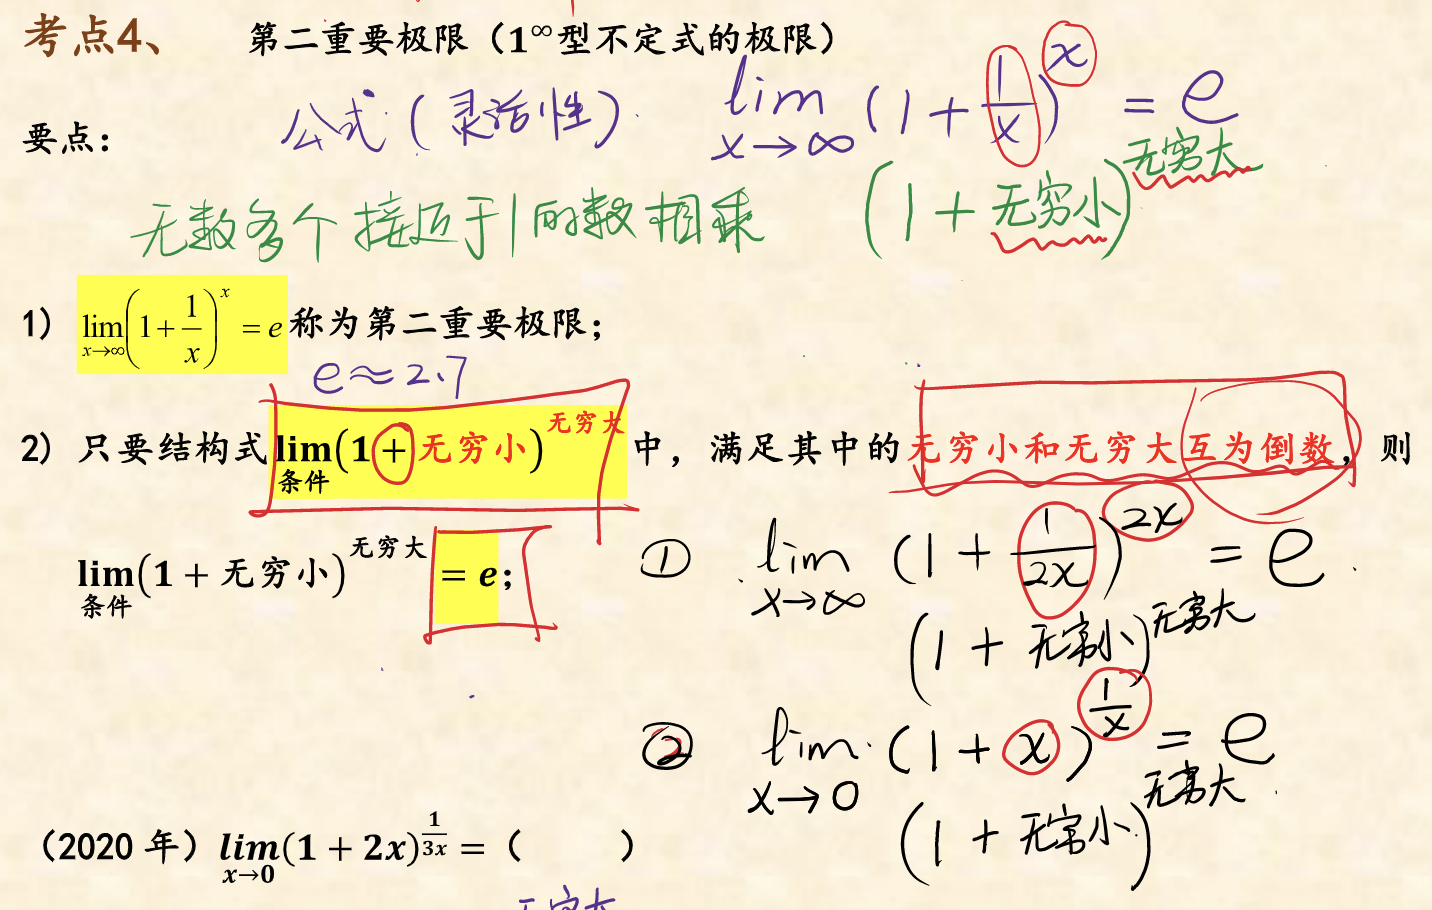 考点4、 第二重要极限（1^∞型不定式的极限）
要点：
公式（灵活性）. lim x→∞ (1 + 1/x)^x = e
无数多个接近于1的数相乘 (1 + 无穷小)^无穷大
1) lim x→∞ (1 + 1/x)^x = e 称为第二重要极限；
e≈2.7
2) 只要结构式 lim 条件 (1 + 无穷小)^无穷大 中，满足其中的无穷小和无穷大互为倒数，则
lim 条件 (1 + 无穷小)^无穷大 = e；
① lim x→∞ (1 + 1/2x)^2x = e.
(1 + 无穷小)^无穷大
② lim x→0 (1 + x)^1/x = e
(1 + 无穷小)^无穷大
（2020 年）lim x→0 (1 + 2x)^1/3x = （ ）